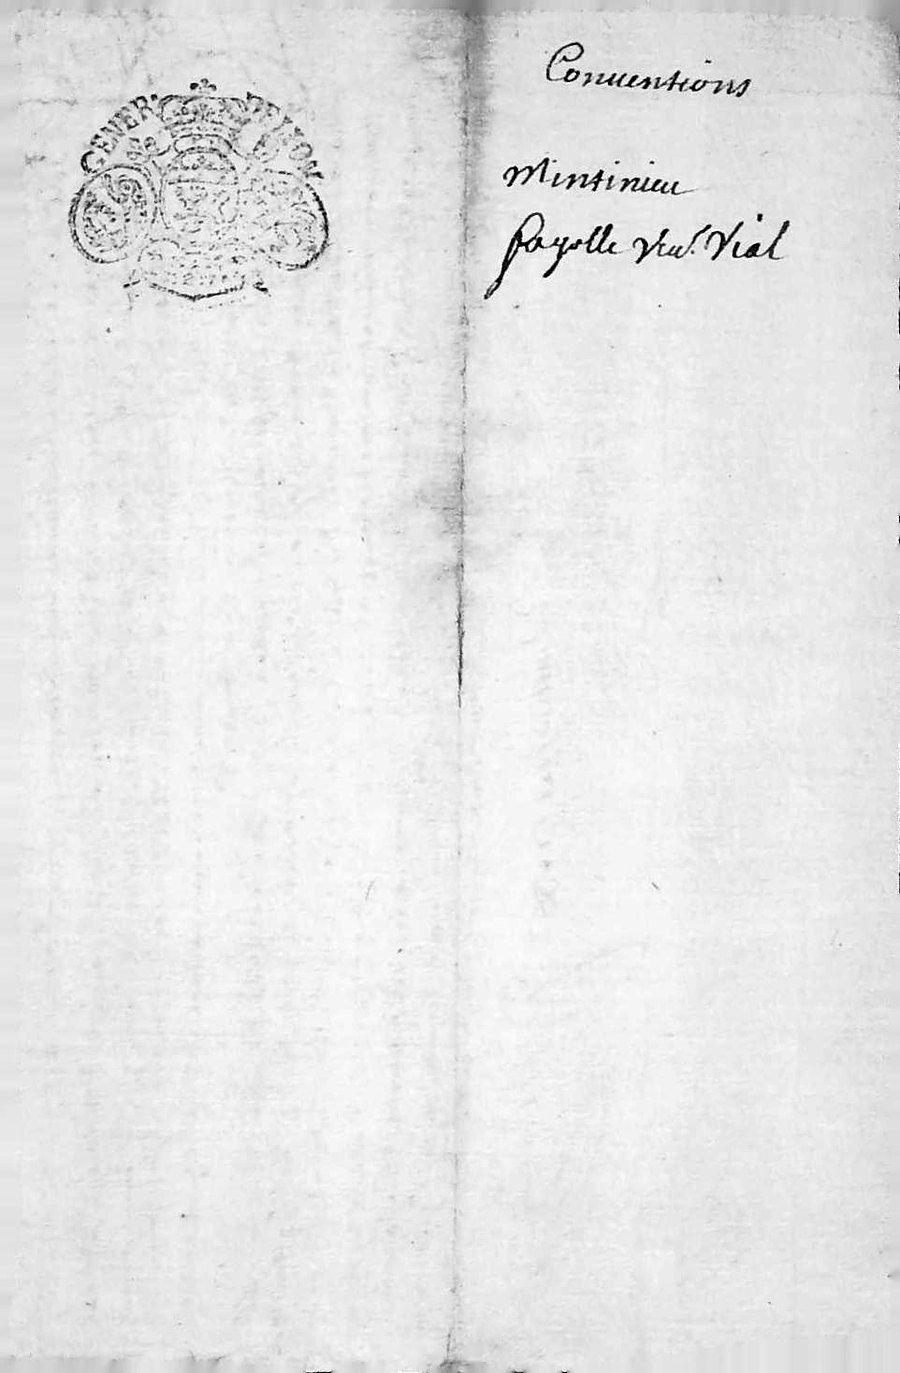 GENER. DE LYON
Conuentions
Mintinieu
fayolle veu. Vial